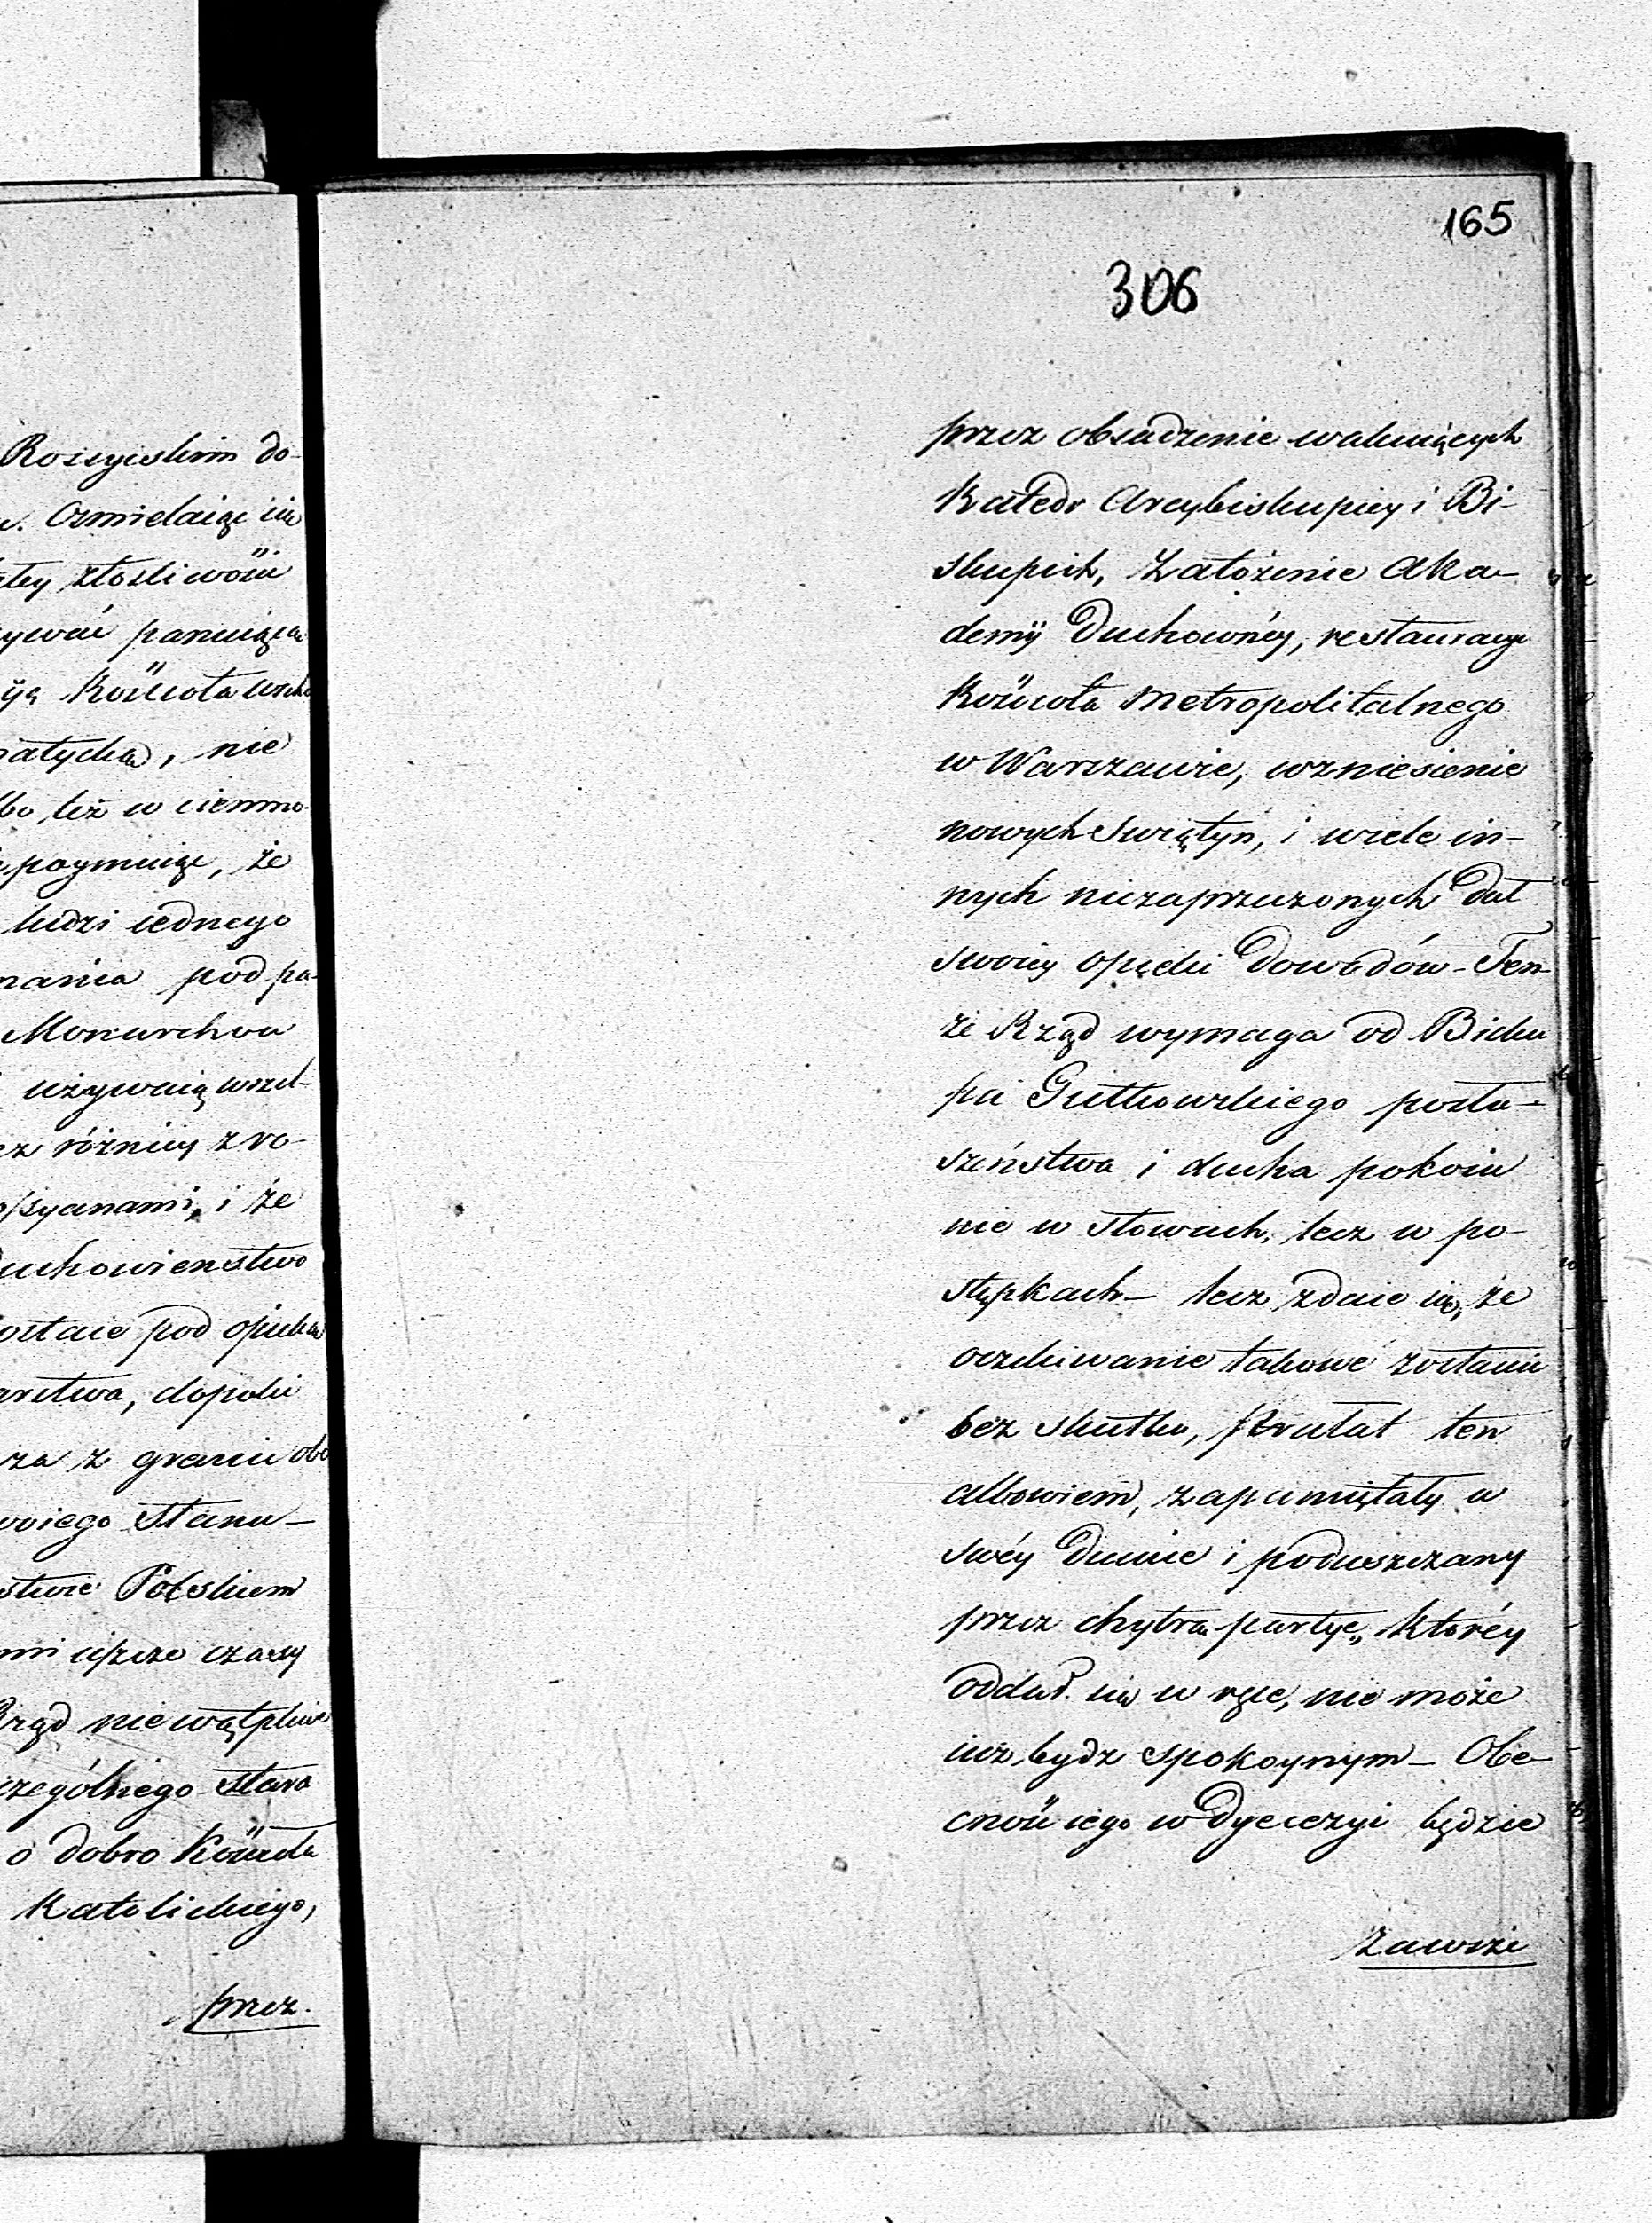 Rossyiskim do-
Ośmielaiąc się
złośliwości
panuiąca
Kościoła
nie
też w ciemno-
poymuiąc, że
ludzi iednego
pod pa-
Monarchow
używaią wszel-
różnicy z ro-
i że
uchowienstwo
ostaie pod opieka
dopoki
za z granic obo
Stanu —
Polskiem
czasy
niewątpliwie
stara
o dobro Kościoła
Katolickiego,
przez.
165
306
przez obsadzenie wakuiących
Katedr Arcybiskupiey i Bi-
skupich, Założenie Aka-
demij Duchownéy, restauracyi
Kościoła Metropolitalnego
w Warszawie, wzniesienie
nowych Swiątyń, i wiele in-
nych niezaprzeczonych dał
swoiey opieki dowodów — Ten-
że Rząd wymaga od Bisku
pa Gutkowskiego posłu-
szeństwa i ducha pokoiu
nie w słowach, lecz w po-
stępkach — lecz zdaie się, że
oczekiwanie takowe zostanie
bez skutku, Prałat ten
albowiem, zapamiętały w
swéy Dumie i poduszczany
przez chytra partye, któréy
oddał się w ręce, nie może
iuż bydz spokoynym — Obe-
cność iego w Dyecezyi będzie
zawsze